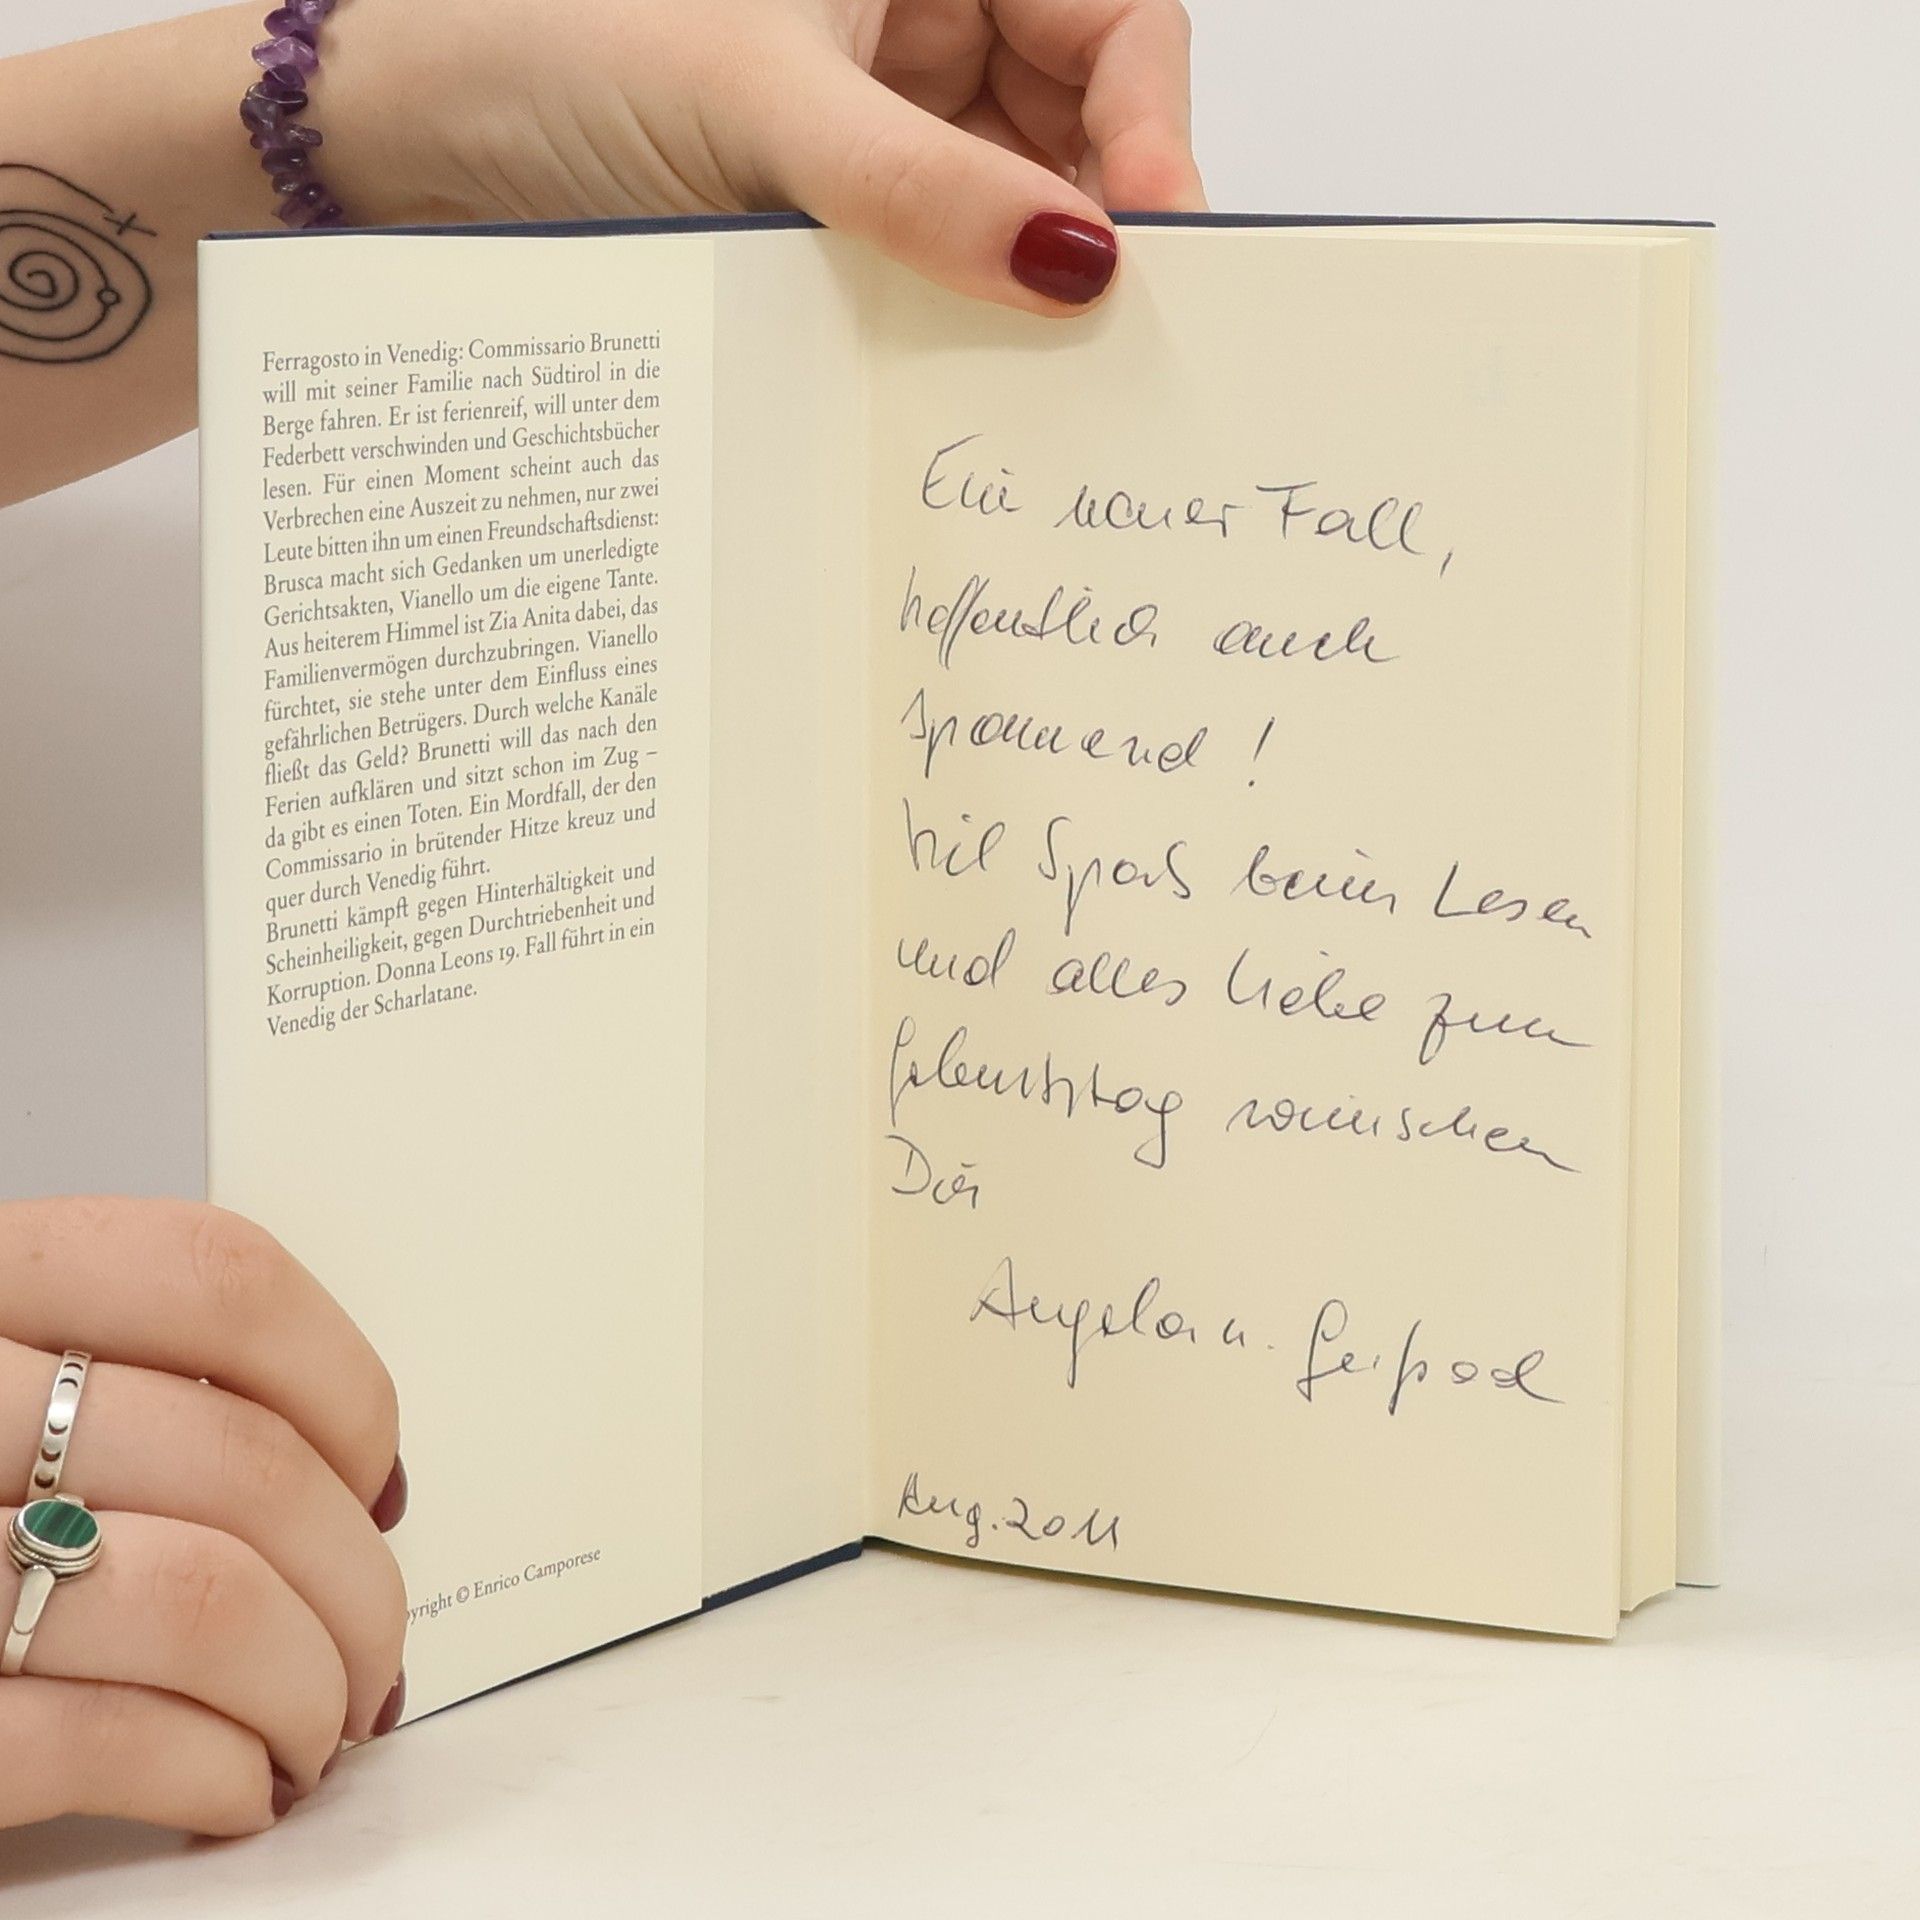 Ferragosto in Venedig: Commissario Brunetti
will mit seiner Familie nach Südtirol in die
Berge fahren. Er ist ferienreif, will unter dem
Federbett verschwinden und Geschichtsbücher
lesen. Für einen Moment scheint auch das
Verbrechen eine Auszeit zu nehmen, nur zwei
Leute bitten ihn um einen Freundschaftsdienst:
Brusca macht sich Gedanken um unerledigte
Gerichtsakten, Vianello um die eigene Tante.
Aus heiterem Himmel ist Zia Anita dabei, das
Familienvermögen durchzubringen. Vianello
fürchtet, sie stehe unter dem Einfluss eines
gefährlichen Betrügers. Durch welche Kanäle
fließt das Geld? Brunetti will das nach den
Ferien aufklären und sitzt schon im Zug –
da gibt es einen Toten. Ein Mordfall, der den
Commissario in brütender Hitze kreuz und
quer durch Venedig führt.
Brunetti kämpft gegen Hinterhältigkeit und
Scheinheiligkeit, gegen Durchtriebenheit und
Korruption. Donna Leons 19. Fall führt in ein
Venedig der Scharlatane.
yright © Enrico Camporese
Ein neuer Fall,
hoffentlich auch
spannend!
Viel Spaß beim Lesen
und alles Liebe zum
Geburtstag wünschen
Dir
Angela u.
Aug. 2011